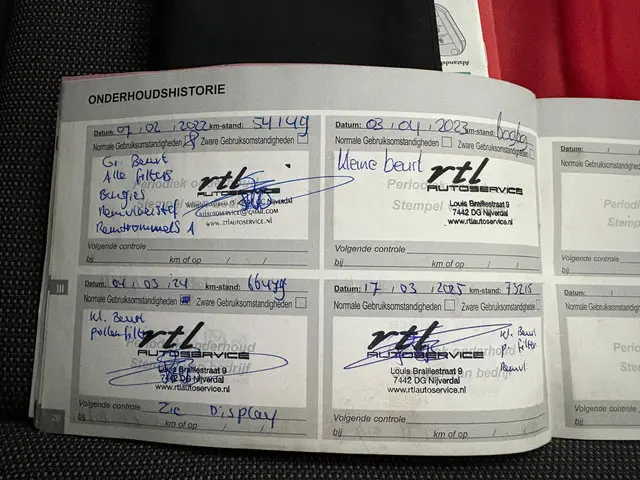 ONDERHOUDSHISTORIE
Datum: 07, 02, 2022 km-stand: 54149
Normale Gebruiksomstandigheden Zware Gebruiksomstandigheden
Gr. Beurt
Alle filters
Bougies
Remvloeistof
Remtrommels
Periodiek
rtl
AUTOSERVICE
Nijverdal
www.rtlautoservice.nl
Volgende controle
bij km of op / /
Datum: 03, 04, 2023 km-stand:
Normale Gebruiksomstandigheden Zware Gebruiksomstandigheden
kleine beurt
Stempel
rtl
AUTOSERVICE
Louis Braillestraat 9
7442 DG Nijverdal
www.rtlautoservice.nl
Volgende controle
bij km of op / /
III
Datum: 04, 03, 24 km-stand: 66479
Normale Gebruiksomstandigheden Zware Gebruiksomstandigheden
Kl. Beurt
pollenfilter
rtl
AUTOSERVICE
Louis Braillestraat 9
7442 DG Nijverdal
www.rtlautoservice.nl
Volgende controle Zie Display
bij km of op / /
Datum: 17, 03, 2025 km-stand: 73215
Normale Gebruiksomstandigheden Zware Gebruiksomstandigheden
Kl. Beurt
P. filter
Remvl
rtl
AUTOSERVICE
Louis Braillestraat 9
7442 DG Nijverdal
www.rtlautoservice.nl
Volgende controle
bij km of op / /
Datum:
Normale Gebr
Perio
Stempel
Volgende con
bij
Datum:
Normale Gebru
Perio
Stempe
Volgende cont
bij